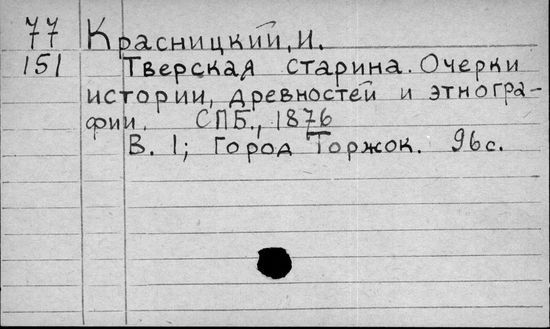 77 Красницкий, И.
151 Тверская старина. Очерки
истории, древностей и этногра-
фии. СПБ., 1876
В. 1; Город Торжок. 96с.